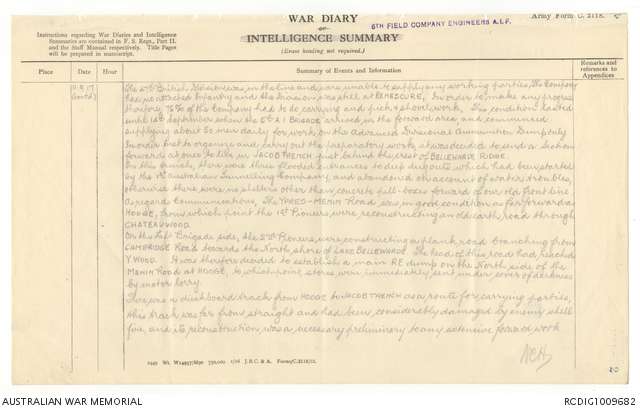 WAR DIARY
or
INTELLIGENCE SUMMARY
(Erase heading not required.)
6TH FIELD COMPANY ENGINEERS A.I.F.
Army Form C. 2118.
Instructions regarding War Diaries and Intelligence
Summaries are contained in F. S. Regs., Part II.
and the Staff Manual respectively. Title Pages
will be prepared in manuscript.
Place
Date
Hour
Summary of Events and Information
Remarks and
references to
Appendices
(Contd)
The British Division was in the line and were unable to supply any working parties. The Company
has no attached Infantry and the Division was still at RENESCURE. In order to make any progress
therefore 75% of the Company had to be carrying and pick & shovel work. This condition lasted
until 16th September when the 5th A I BRIGADE arrived in the forward area, and commenced
supplying about 50 men daily for work on the Advanced Divisional Ammunition Dump only
In order first to organize and carry out the preparatory work, it was decided to send a Section
forward at once to live in JACOB TRENCH just behind the crest of BELLEWARDE RIDGE.
In this trench, there were three flooded entrances to deep dugouts which had been started
by the 1st Australian Tunnelling Company and abandoned on account of water troubles,
otherwise there were no shelters other than concrete pill-boxes forward of our old front line
As regard Communications. The YPRES-MENIN Road was in good condition as far forward as
HOOGE, from which point the 1st Pioneers were reconstructing an old earth road through
CHATEAU WOOD.
On the Left Brigade side, the 2nd Pioneers, were constructing a plank road branching from
CAMBRIDGE Road towards the North shore of LAKE BELLEWARDE. The head of this road had reached
Y WOOD. It was therefore decided to establish a main RE dump on the North side of the
MENIN Road at HOOGE, to which point stores were immediately sent under cover of darkness
by motor lorry.
There was a duckboard track from HOOGE to JACOB TRENCH as a route for carrying parties,
this track was far from straight and had been considerably damaged by enemy shell
fire, and its reconstruction was a necessary preliminary to any extensive forward work
AUSTRALIAN WAR MEMORIAL
RCDIG1009682